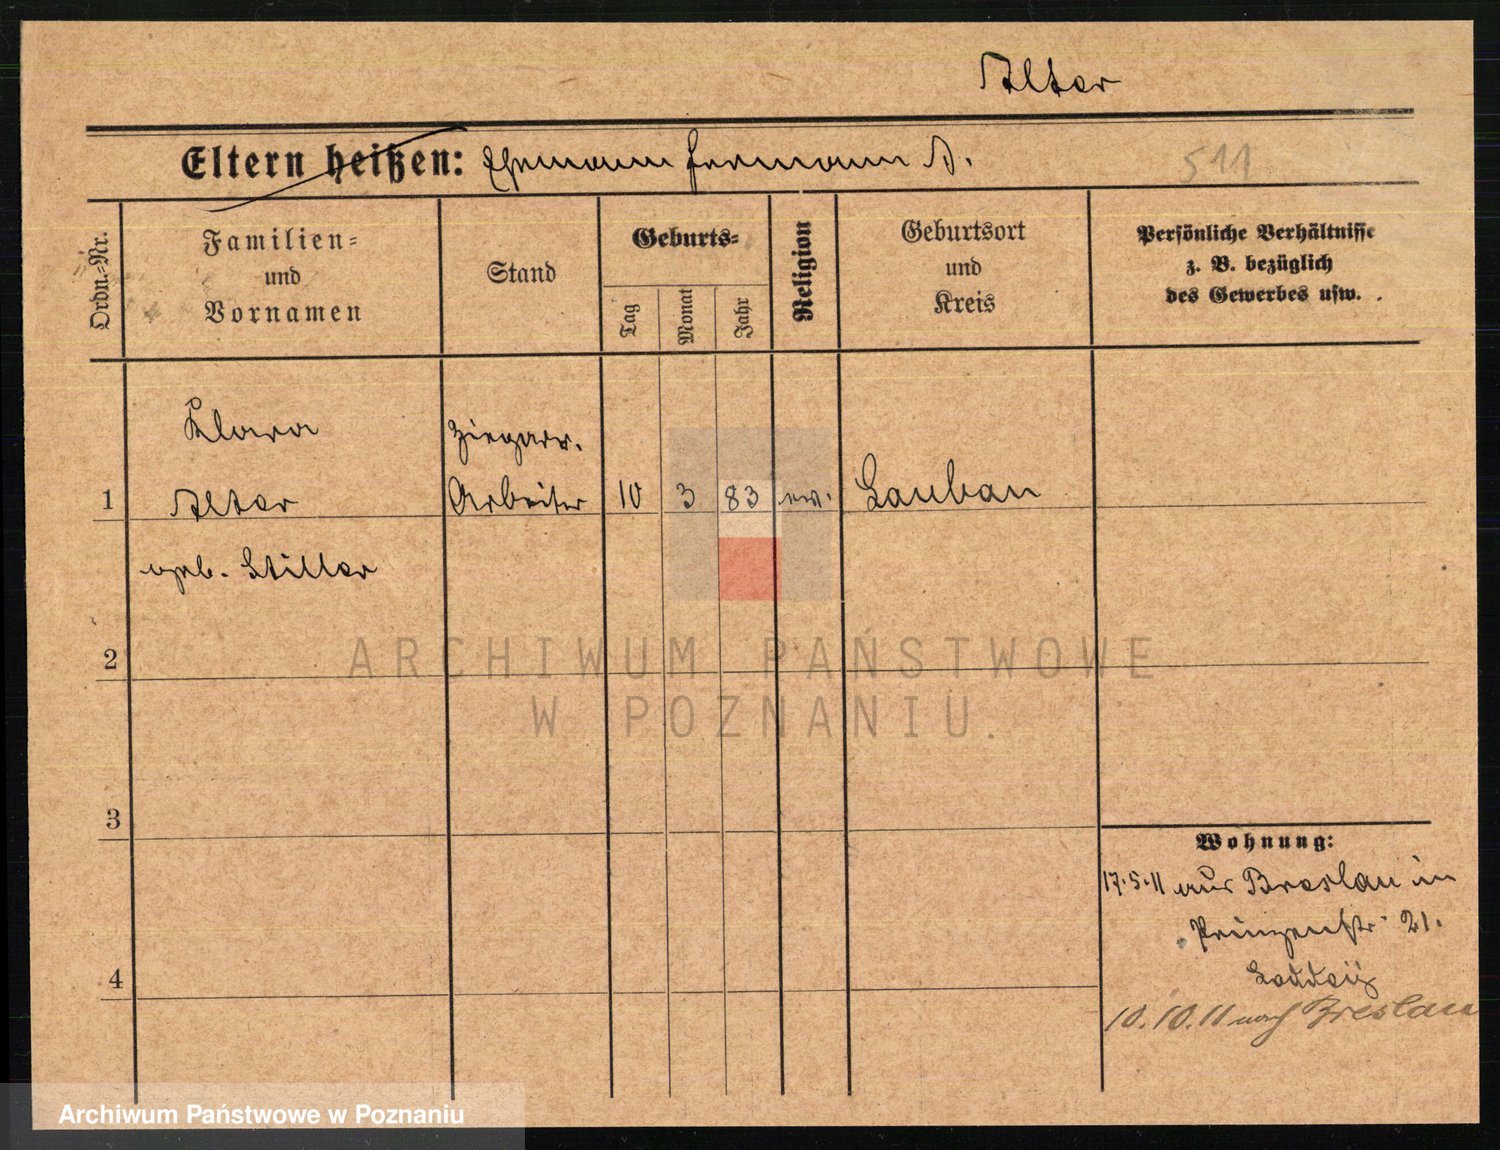 Alter
Eltern heißen: Ehemann Hermann A.
511
Ordn.-Nr.
Familien-
und
Vornamen
Stand
Geburts-
Tag
Monat
Jahr
Religion
Geburtsort
und
Kreis
Persönliche Verhältnisse
z. B. bezüglich
des Gewerbes usw.
Klara
Zigarr.
1 Alter Arbeiter 10 3 83 ev. Lauban
geb. Stiller
2
ARCHIWUM PAŃSTWOWE
W POZNANIU.
3
Wohnung:
17.5.11 aus Breslau in
Prinzenstr 21.
4
10.10.11 nach Breslau
Archiwum Państwowe w Poznaniu